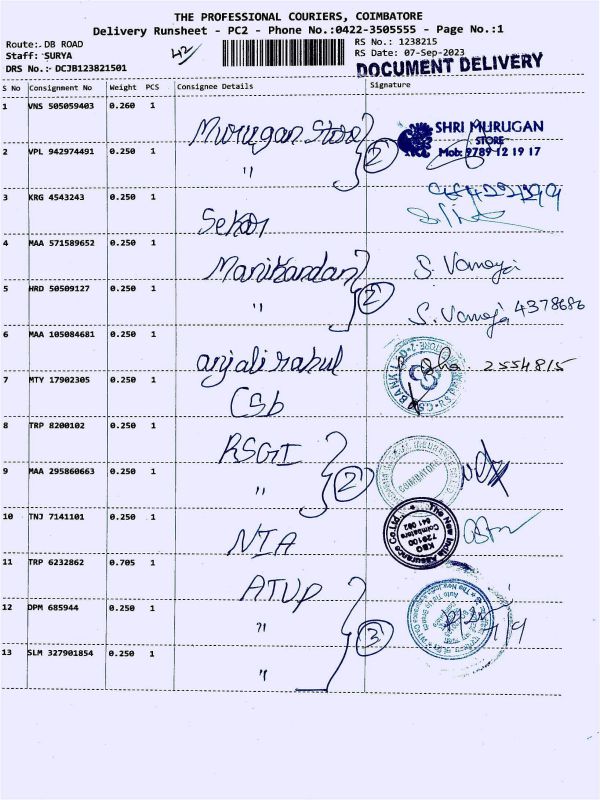 THE PROFESSIONAL COURIERS, COIMBATORE
Delivery Runsheet - PC2 - Phone No.:0422-3505555 - Page No.:1
Route:. DB ROAD
Staff: SURYA
DRS No.:- DCJB123821501
42
RS No.: 1238215
RS Date: 07-Sep-2023
DOCUMENT DELIVERY
S No Consignment No Weight PCS Consignee Details Signature
1 VNS 505059403 0.260 1 Murugan Store
SHRI MURUGAN
STORE
Mob: 9789 12 19 17
2 VPL 942974491 0.250 1 " 2
3 KRG 4543243 0.250 1 Sekar
4 MAA 571589652 0.250 1 Manikandan S. Vanaja
5 HRD 50509127 0.250 1 " 2 S. Vanaja 4378686
6 MAA 105084681 0.250 1 anjali rahul 2554815
7 MTY 17902305 0.250 1 CSb
8 TRP 8200102 0.250 1 RSGI
9 MAA 295860663 0.250 1 " 2
COIMBATORE
10 TNJ 7141101 0.250 1 NIA
The New India Assurance Co.Ltd.
KBO
729100
Coimbatore
641 002
11 TRP 6232862 0.705 1 ATUP
12 DPM 685944 0.250 1 " 3
13 SLM 327901854 0.250 1 "